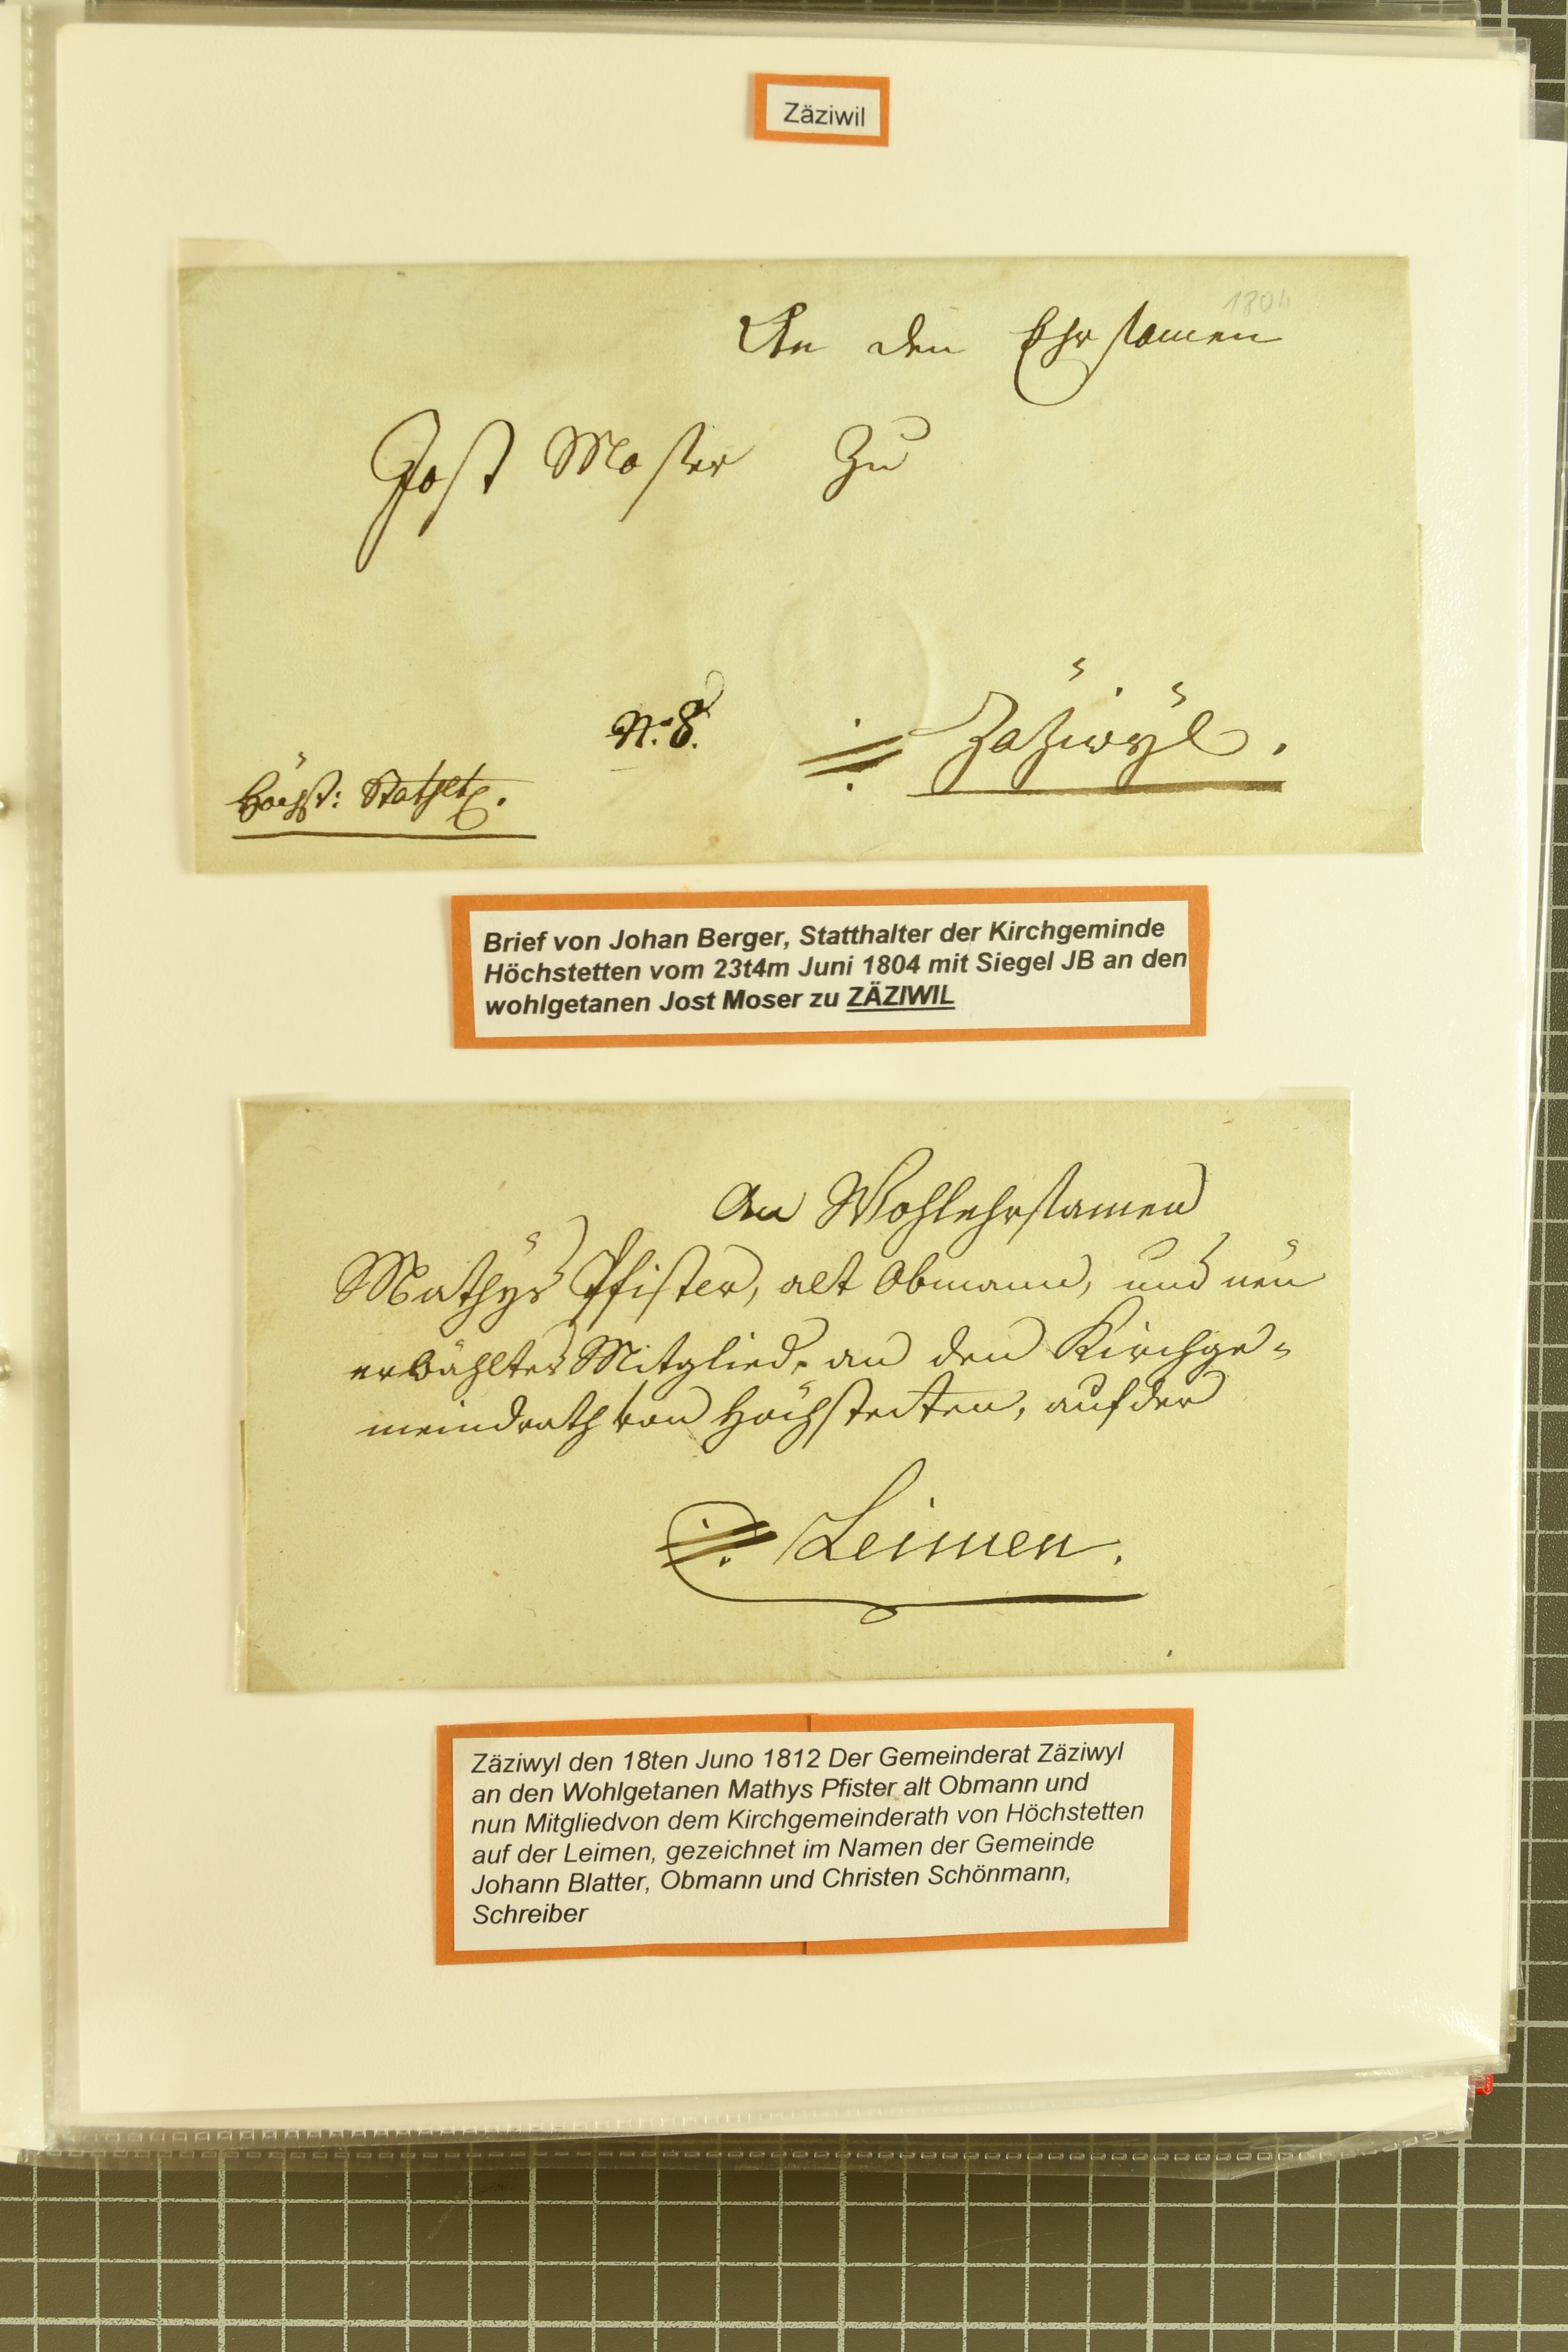 Zäziwil
1804
An den Ehrsamen
Jost Moser zu
No. 8.
Zäziwÿl.
Höchst: Stathlt.
Brief von Johan Berger, Statthalter der Kirchgeminde
Höchstetten vom 23t4m Juni 1804 mit Siegel JB an den
wohlgetanen Jost Moser zu ZÄZIWIL
An Wohlehrsamen
Mathÿs Pfister, alt Obmann, und neü
erwählter Mitglied, an den Kirchge=
meindrath von Höchstetten, auf der
Leimen.
Zäziwyl den 18ten Juno 1812 Der Gemeinderat Zäziwyl
an den Wohlgetanen Mathys Pfister alt Obmann und
nun Mitgliedvon dem Kirchgemeinderath von Höchstetten
auf der Leimen, gezeichnet im Namen der Gemeinde
Johann Blatter, Obmann und Christen Schönmann,
Schreiber